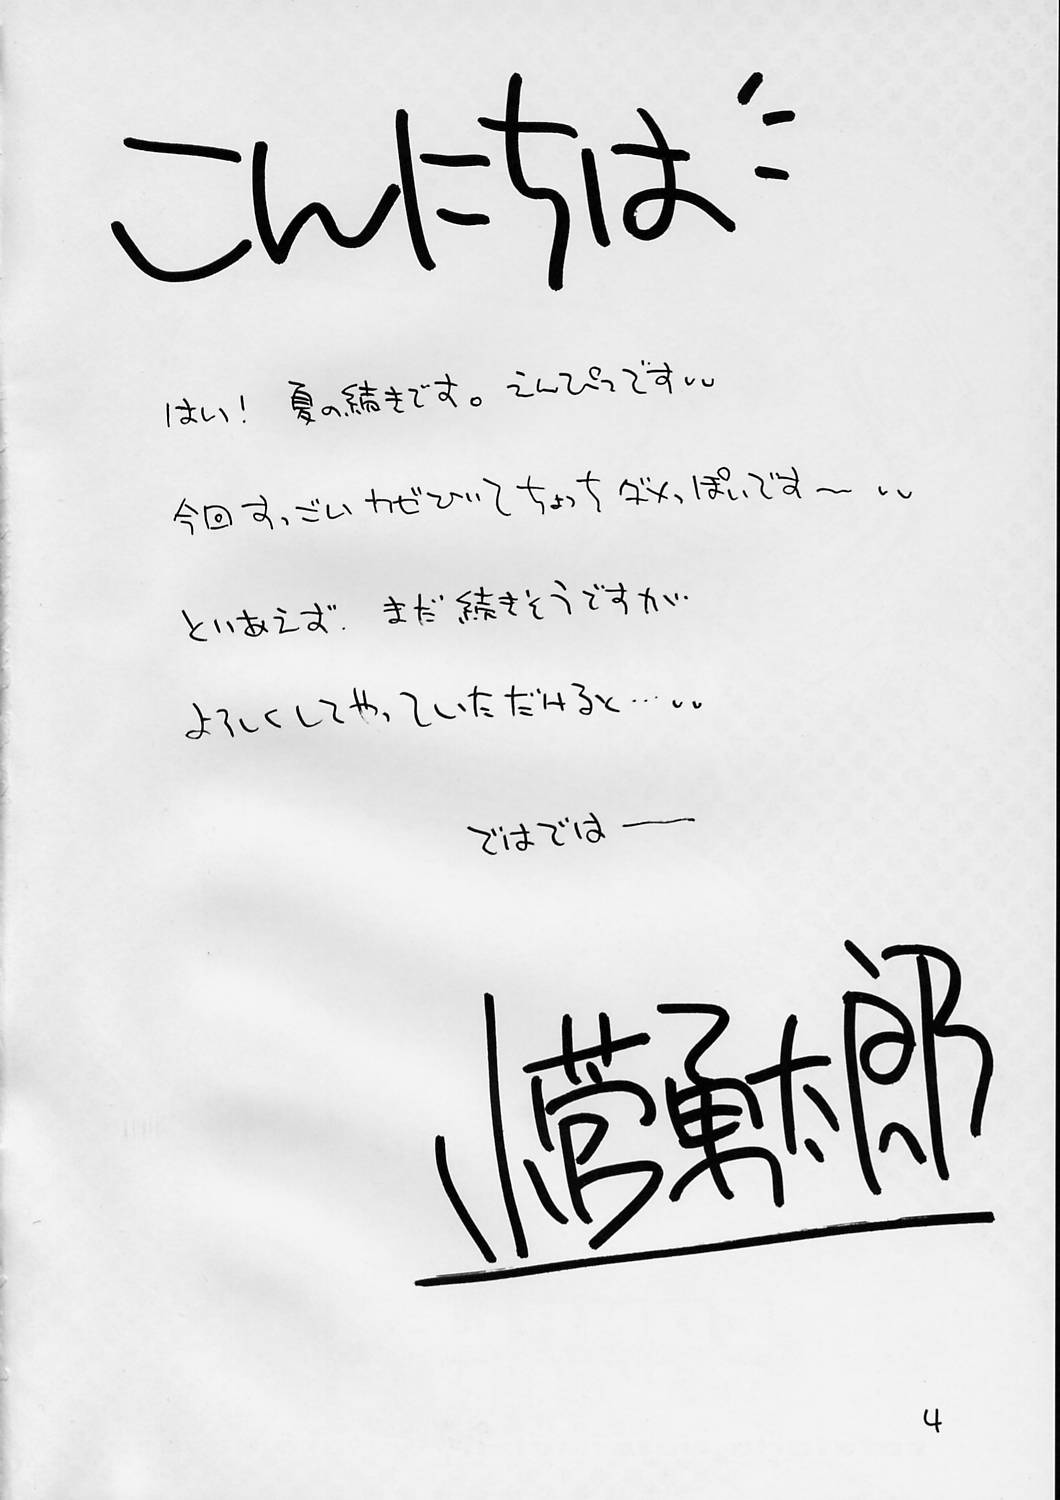 こんにちは
はい! 夏の続きです。えんぴつです
今回すっごいカゼひいてちょっちダメっぽいです〜
といあえず. まだ続きそうですが
よろしくしてやっていただけると…
ではでは——
小菅勇太郎
4